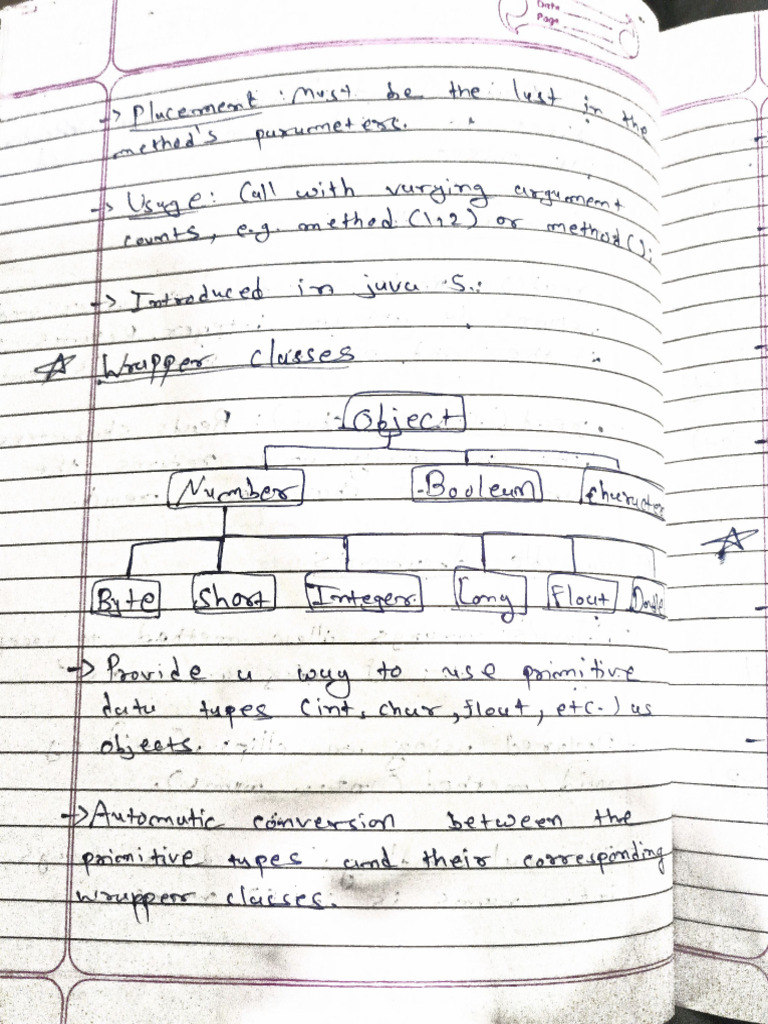 Date
Page
-> Placement : Must be the last in the
method's parameters.
-> Usage: Call with varying argument
counts, e.g. method (1,2) or method();
-> Introduced in java 5.
☆ Wrapper classes
Object
Number Boolean Character
Byte Short Integer Long Float Double
-> Provide a way to use primitive
data types (int, char, float, etc.) as
objects.
-> Automatic conversion between the
primitive types and their corresponding
wrapper classes.